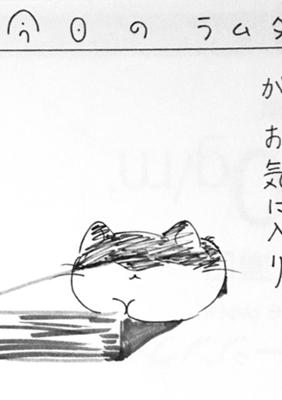 今日のラムダ
がお気に入り